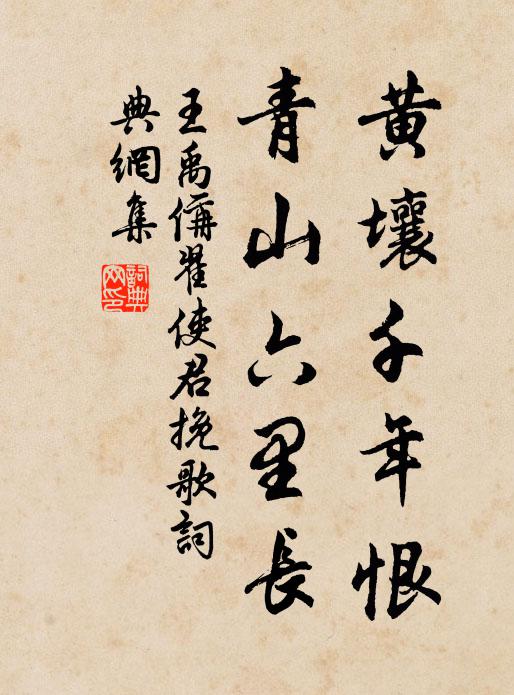 黄壤千年恨
青山六里長
王禹偁翟使君挽歌詞
典網集
詞典网印